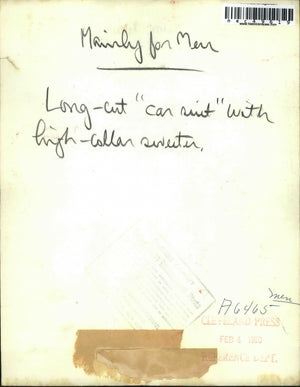 Mainly for Men
Long-cut "car suit" with
high-collar sweater.
men
A6465
CLEVELAND PRESS
FEB 4
REFERENCE DEPT.